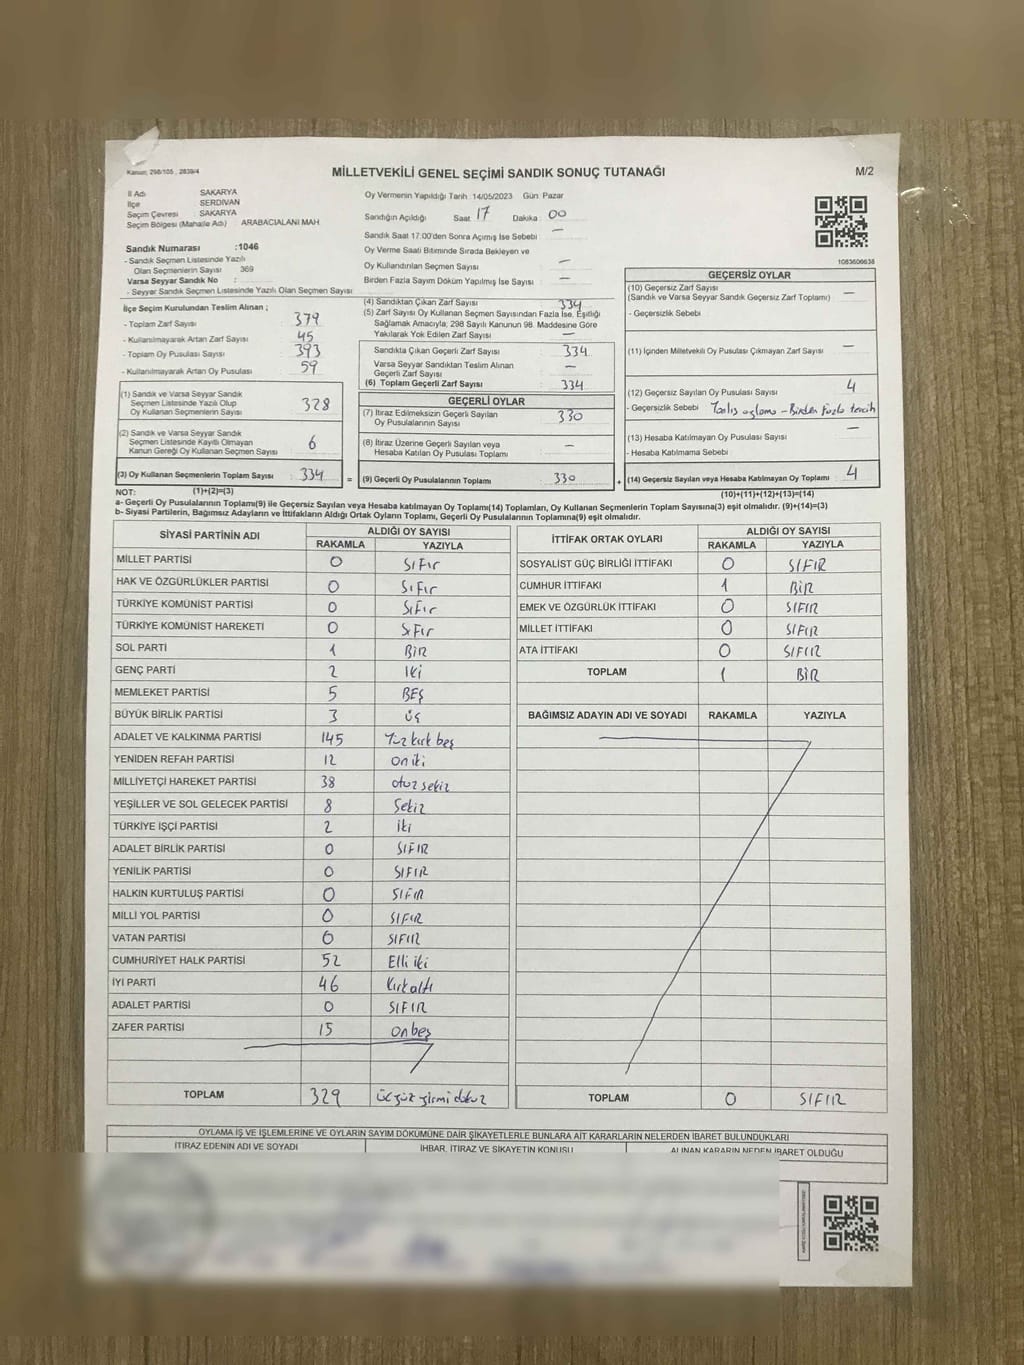 Kanun; 298/105 , 2839/4
MİLLETVEKİLİ GENEL SEÇİMİ SANDIK SONUÇ TUTANAĞI
M/2
İl Adı SAKARYA
İlçe SERDİVAN
Seçim Çevresi : SAKARYA
Seçim Bölgesi (Mahalle Adı) : ARABACIALANI MAH
Oy Vermenin Yapıldığı Tarih 14/05/2023 Gün Pazar
Sandığın Açıldığı Saat 17 Dakika : 00
Sandık Saat 17:00'den Sonra Açımış İse Sebebi —
Sandık Numarası :1046
- Sandık Seçmen Listesinde Yazılı
Olan Seçmenlerin Sayısı 369
Varsa Seyyar Sandık No :
- Seyyar Sandık Listesinde Yazılı Olan Seçmen Sayısı
Oy Verme Saati Bitiminde Sırada Bekleyen ve
Oy Kullandırılan Seçmen Sayısı —
Birden Fazla Sayım Döküm Yapılmış İse Sayısı —
1083606638
İlçe Seçim Kurulundan Teslim Alınan ;
- Toplam Zarf Sayısı 379
- Kullanılmayarak Artan Zarf Sayısı 45
- Toplam Oy Pusulası Sayısı 393
- Kullanılmayarak Artan Oy Pusulası 59
(1) Sandık ve Varsa Seyyar Sandık
Seçmen Listesinde Yazılı Olup
Oy Kullanan Seçmenlerin Sayısı 328
(2) Sandık ve Varsa Seyyar Sandık
Seçmen Listesinde Kayıtlı Olmayan
Kanun Gereği Oy Kullanan Seçmen Sayısı 6
(3) Oy Kullanan Seçmenlerin Toplam Sayısı : 334
(1)+(2)=(3)
(4) Sandıktan Çıkan Zarf Sayısı : 334
(5) Zarf Sayısı Oy Kullanan Seçmen Sayısından Fazla İse, Eşitliği
Sağlamak Amacıyla; 298 Sayılı Kanunun 98. Maddesine Göre
Yakılarak Yok Edilen Zarf Sayısı : —
Sandıkta Çıkan Geçerli Zarf Sayısı : 334
Varsa Seyyar Sandıktan Teslim Alınan
Geçerli Zarf Sayısı : —
(6) Toplam Geçerli Zarf Sayısı : 334
GEÇERLİ OYLAR
(7) İtiraz Edilmeksizin Geçerli Sayılan
Oy Pusulalarının Sayısı : 330
(8) İtiraz Üzerine Geçerli Sayılan veya
Hesaba Katılan Oy Pusulası Toplamı : —
= (9) Geçerli Oy Pusulalarının Toplamı : 330
GEÇERSİZ OYLAR
(10) Geçersiz Zarf Sayısı
(Sandık ve Varsa Seyyar Sandık Geçersiz Zarf Toplamı) : —
- Geçersizlik Sebebi
(11) İçinden Milletvekili Oy Pusulası Çıkmayan Zarf Sayısı : —
(12) Geçersiz Sayılan Oy Pusulası Sayısı : 4
- Geçersizlik Sebebi Yanlış oylama - Birden Fazla tercih
(13) Hesaba Katılmayan Oy Pusulası Sayısı : —
- Hesaba Katılmama Sebebi
+ (14) Geçersiz Sayılan veya Hesaba Katılmayan Oy Toplamı : 4
(10)+(11)+(12)+(13)=(14)
NOT:
a- Geçerli Oy Pusulalarının Toplamı(9) ile Geçersiz Sayılan veya Hesaba katılmayan Oy Toplamı(14) Toplamları, Oy Kullanan Seçmenlerin Toplam Sayısına(3) eşit olmalıdır. (9)+(14)=(3)
b- Siyasi Partilerin, Bağımsız Adayların ve İttifakların Aldığı Ortak Oyların Toplamı, Geçerli Oy Pusulalarının Toplamına(9) eşit olmalıdır.
SİYASİ PARTİNİN ADI ALDIĞI OY SAYISI
RAKAMLA YAZIYLA
MİLLET PARTİSİ 0 Sıfır
HAK VE ÖZGÜRLÜKLER PARTİSİ 0 Sıfır
TÜRKİYE KOMÜNİST PARTİSİ 0 Sıfır
TÜRKİYE KOMÜNİST HAREKETİ 0 Sıfır
SOL PARTİ 1 BİR
GENÇ PARTİ 2 İki
MEMLEKET PARTİSİ 5 BEŞ
BÜYÜK BİRLİK PARTİSİ 3 üç
ADALET VE KALKINMA PARTİSİ 145 Yüz kırk beş
YENİDEN REFAH PARTİSİ 12 on iki
MİLLİYETÇİ HAREKET PARTİSİ 38 otuz sekiz
YEŞİLLER VE SOL GELECEK PARTİSİ 8 Sekiz
TÜRKİYE İŞÇİ PARTİSİ 2 iki
ADALET BİRLİK PARTİSİ 0 SIFIR
YENİLİK PARTİSİ 0 SIFIR
HALKIN KURTULUŞ PARTİSİ 0 SIFIR
MİLLİ YOL PARTİSİ 0 SIFIR
VATAN PARTİSİ 0 SIFIR
CUMHURİYET HALK PARTİSİ 52 Elli iki
İYİ PARTİ 46 Kırkaltı
ADALET PARTİSİ 0 SIFIR
ZAFER PARTİSİ 15 onbeş
TOPLAM 329 üçyüz yirmi dokuz
İTTİFAK ORTAK OYLARI ALDIĞI OY SAYISI
RAKAMLA YAZIYLA
SOSYALİST GÜÇ BİRLİĞİ İTTİFAKI 0 SIFIR
CUMHUR İTTİFAKI 1 BİR
EMEK VE ÖZGÜRLÜK İTTİFAKI 0 SIFIR
MİLLET İTTİFAKI 0 SIFIR
ATA İTTİFAKI 0 SIFIR
TOPLAM 1 BİR
BAĞIMSIZ ADAYIN ADI VE SOYADI RAKAMLA YAZIYLA
TOPLAM 0 SIFIR
OYLAMA İŞ VE İŞLEMLERİNE VE OYLARIN SAYIM DÖKÜMÜNE DAİR ŞİKAYETLERLE BUNLARA AİT KARARLARIN NELERDEN İBARET BULUNDUKLARI
İTİRAZ EDENİN ADI VE SOYADI İHBAR, İTİRAZ VE ŞİKAYETİN KONUSU ALINAN KARARIN NEDEN İBARET OLDUĞU